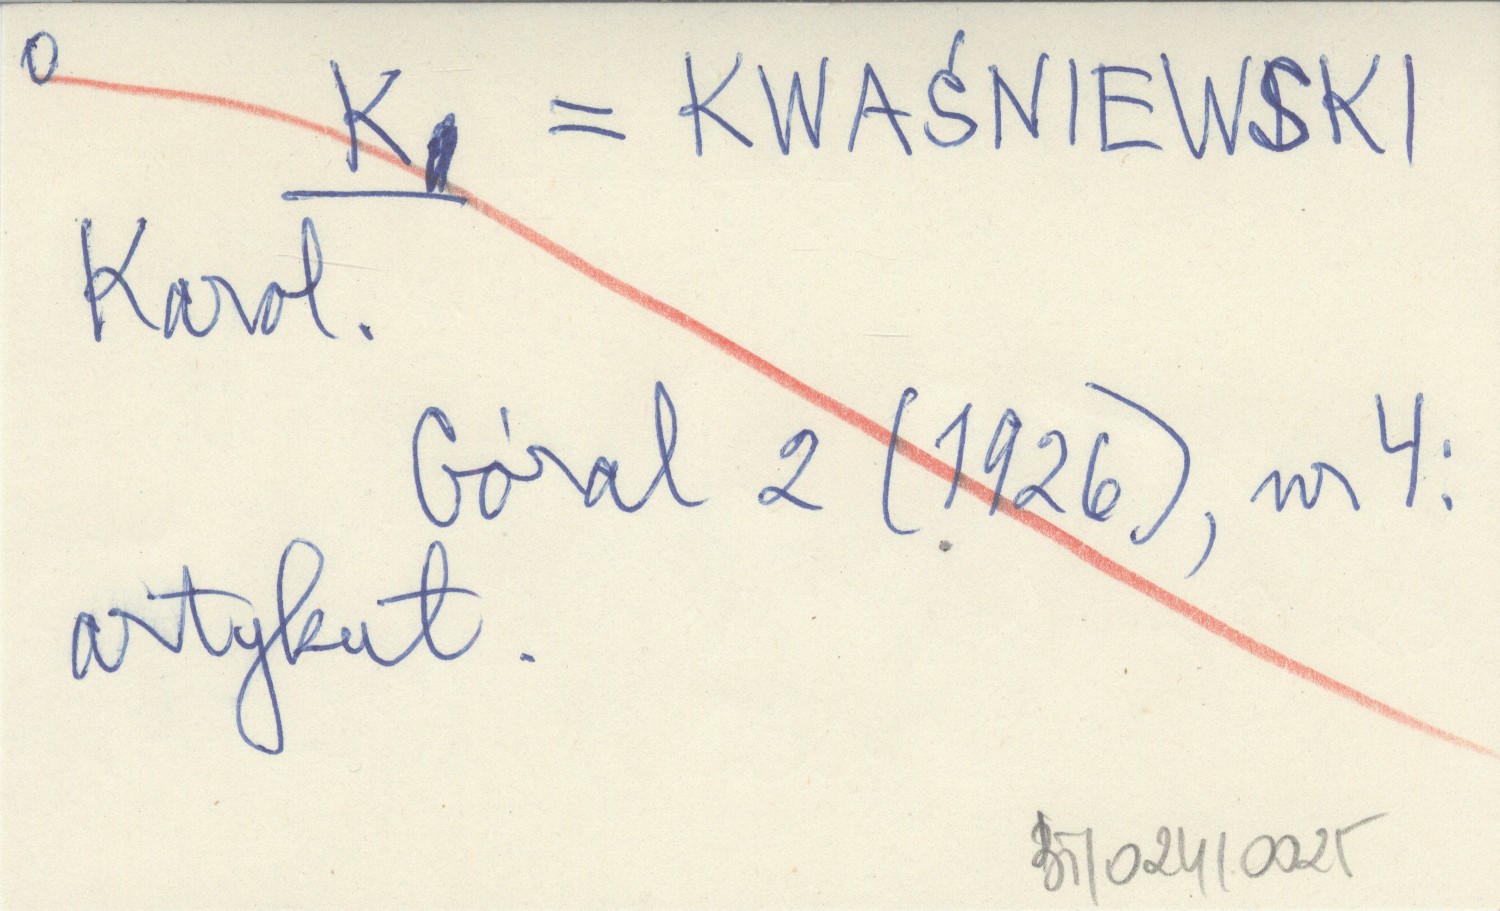 o
K = KWAŚNIEWSKI
Karol.
Góral 2 (1926), nr 4:
artykuł.
/024/0025